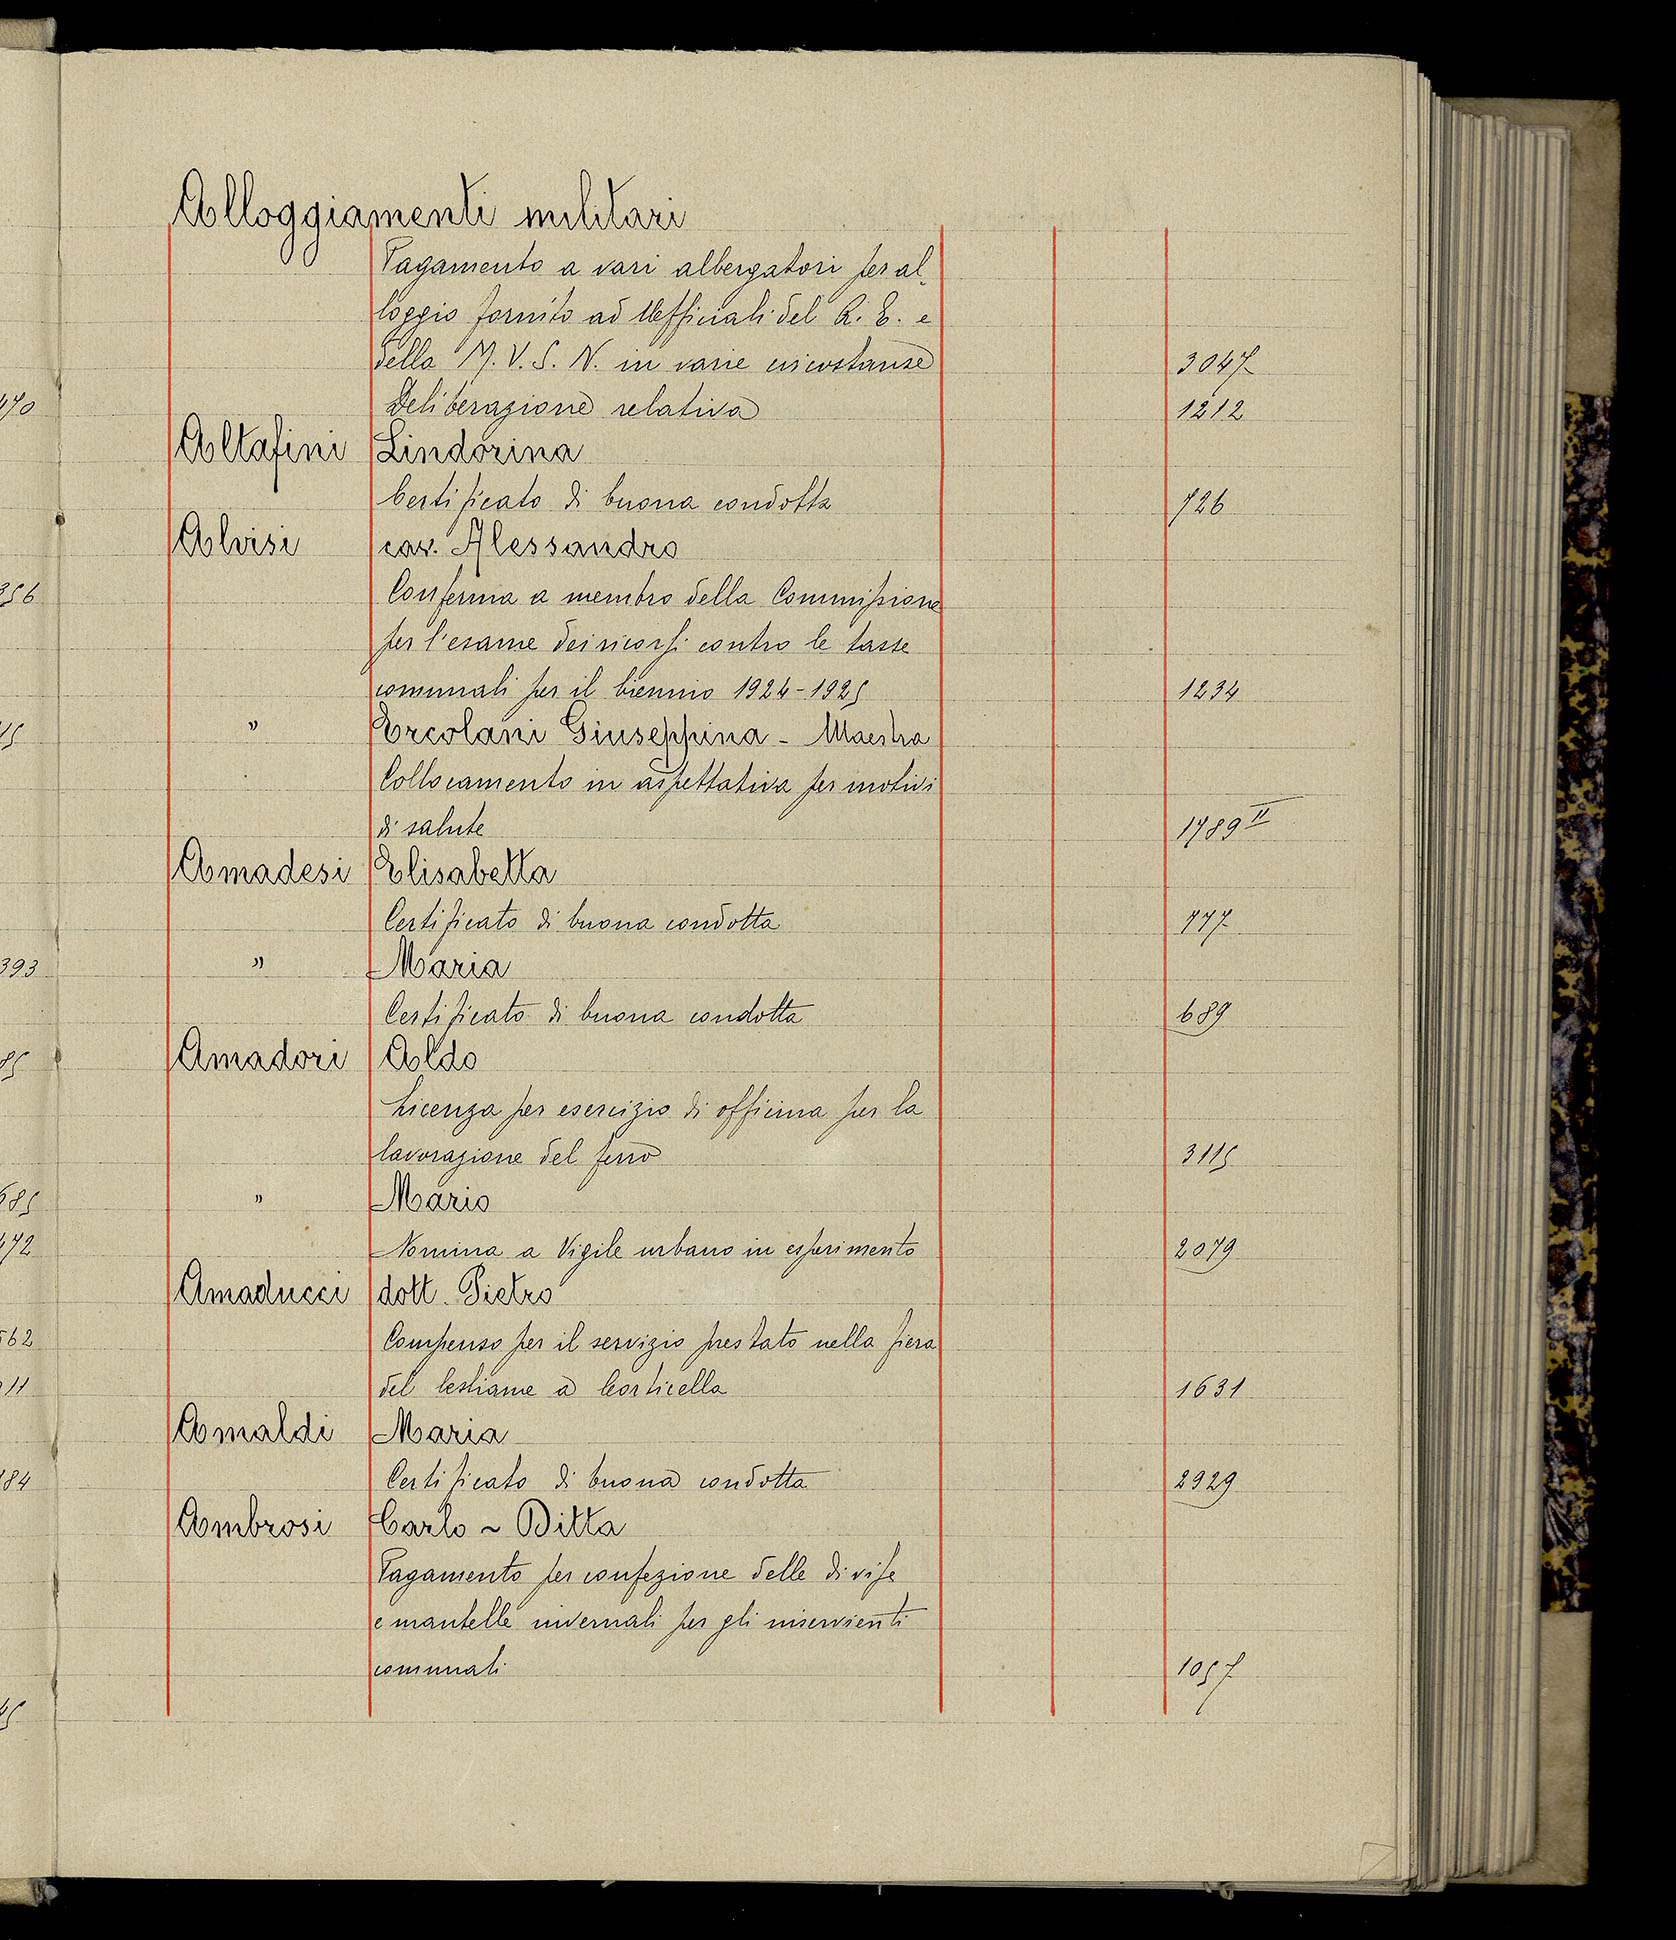 Alloggiamenti militari
Pagamento a vari albergatori per al-
loggio fornito ad Uefficiali del R. E. e
della M. V. S. N. in varie circostanze 3047
470 Deliberazione relativa 1212
Altafini Lindorina
Certificato di buona condotta 726
Alvisi cav. Alessandro
356 Conferma a membro della Commissione
per l'esame dei ricorsi contro le tasse
comunali per il biennio 1924-1925 1234
15 " Ercolani Giuseppina - Maestra
Collocamento in aspettativa per motivi
di salute 1789 II
Amadesi Elisabetta
Certificato di buona condotta 777
393 " Maria
Certificato di buona condotta 689
85 Amadori Aldo
Licenza per esercizio di officina per la
lavorazione del ferro 3115
685 " Mario
472 Nomina a Vigile urbano in esperimento 2079
Amaducci dott. Pietro
562 Compenso per il servizio prestato nella fiera
11 del bestiame a Corticella 1631
Amaldi Maria
184 Certificato di buona condotta 2929
Ambrosi Carlo ~ Ditta
Pagamento per confezione delle divise
e mantelle invernali per gli inservienti
comunali 1057
45